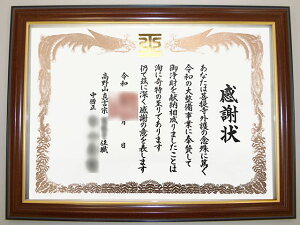 感謝状
あなたは菩提寺外護の念殊に篤く
令和の大整備事業に参賛して
御浄財を献納相成りましたことは
洵に奇特の至りであります
仍て茲に深く感謝の意を表します
令和 月 日
高野山真言宗 住職
中僧正